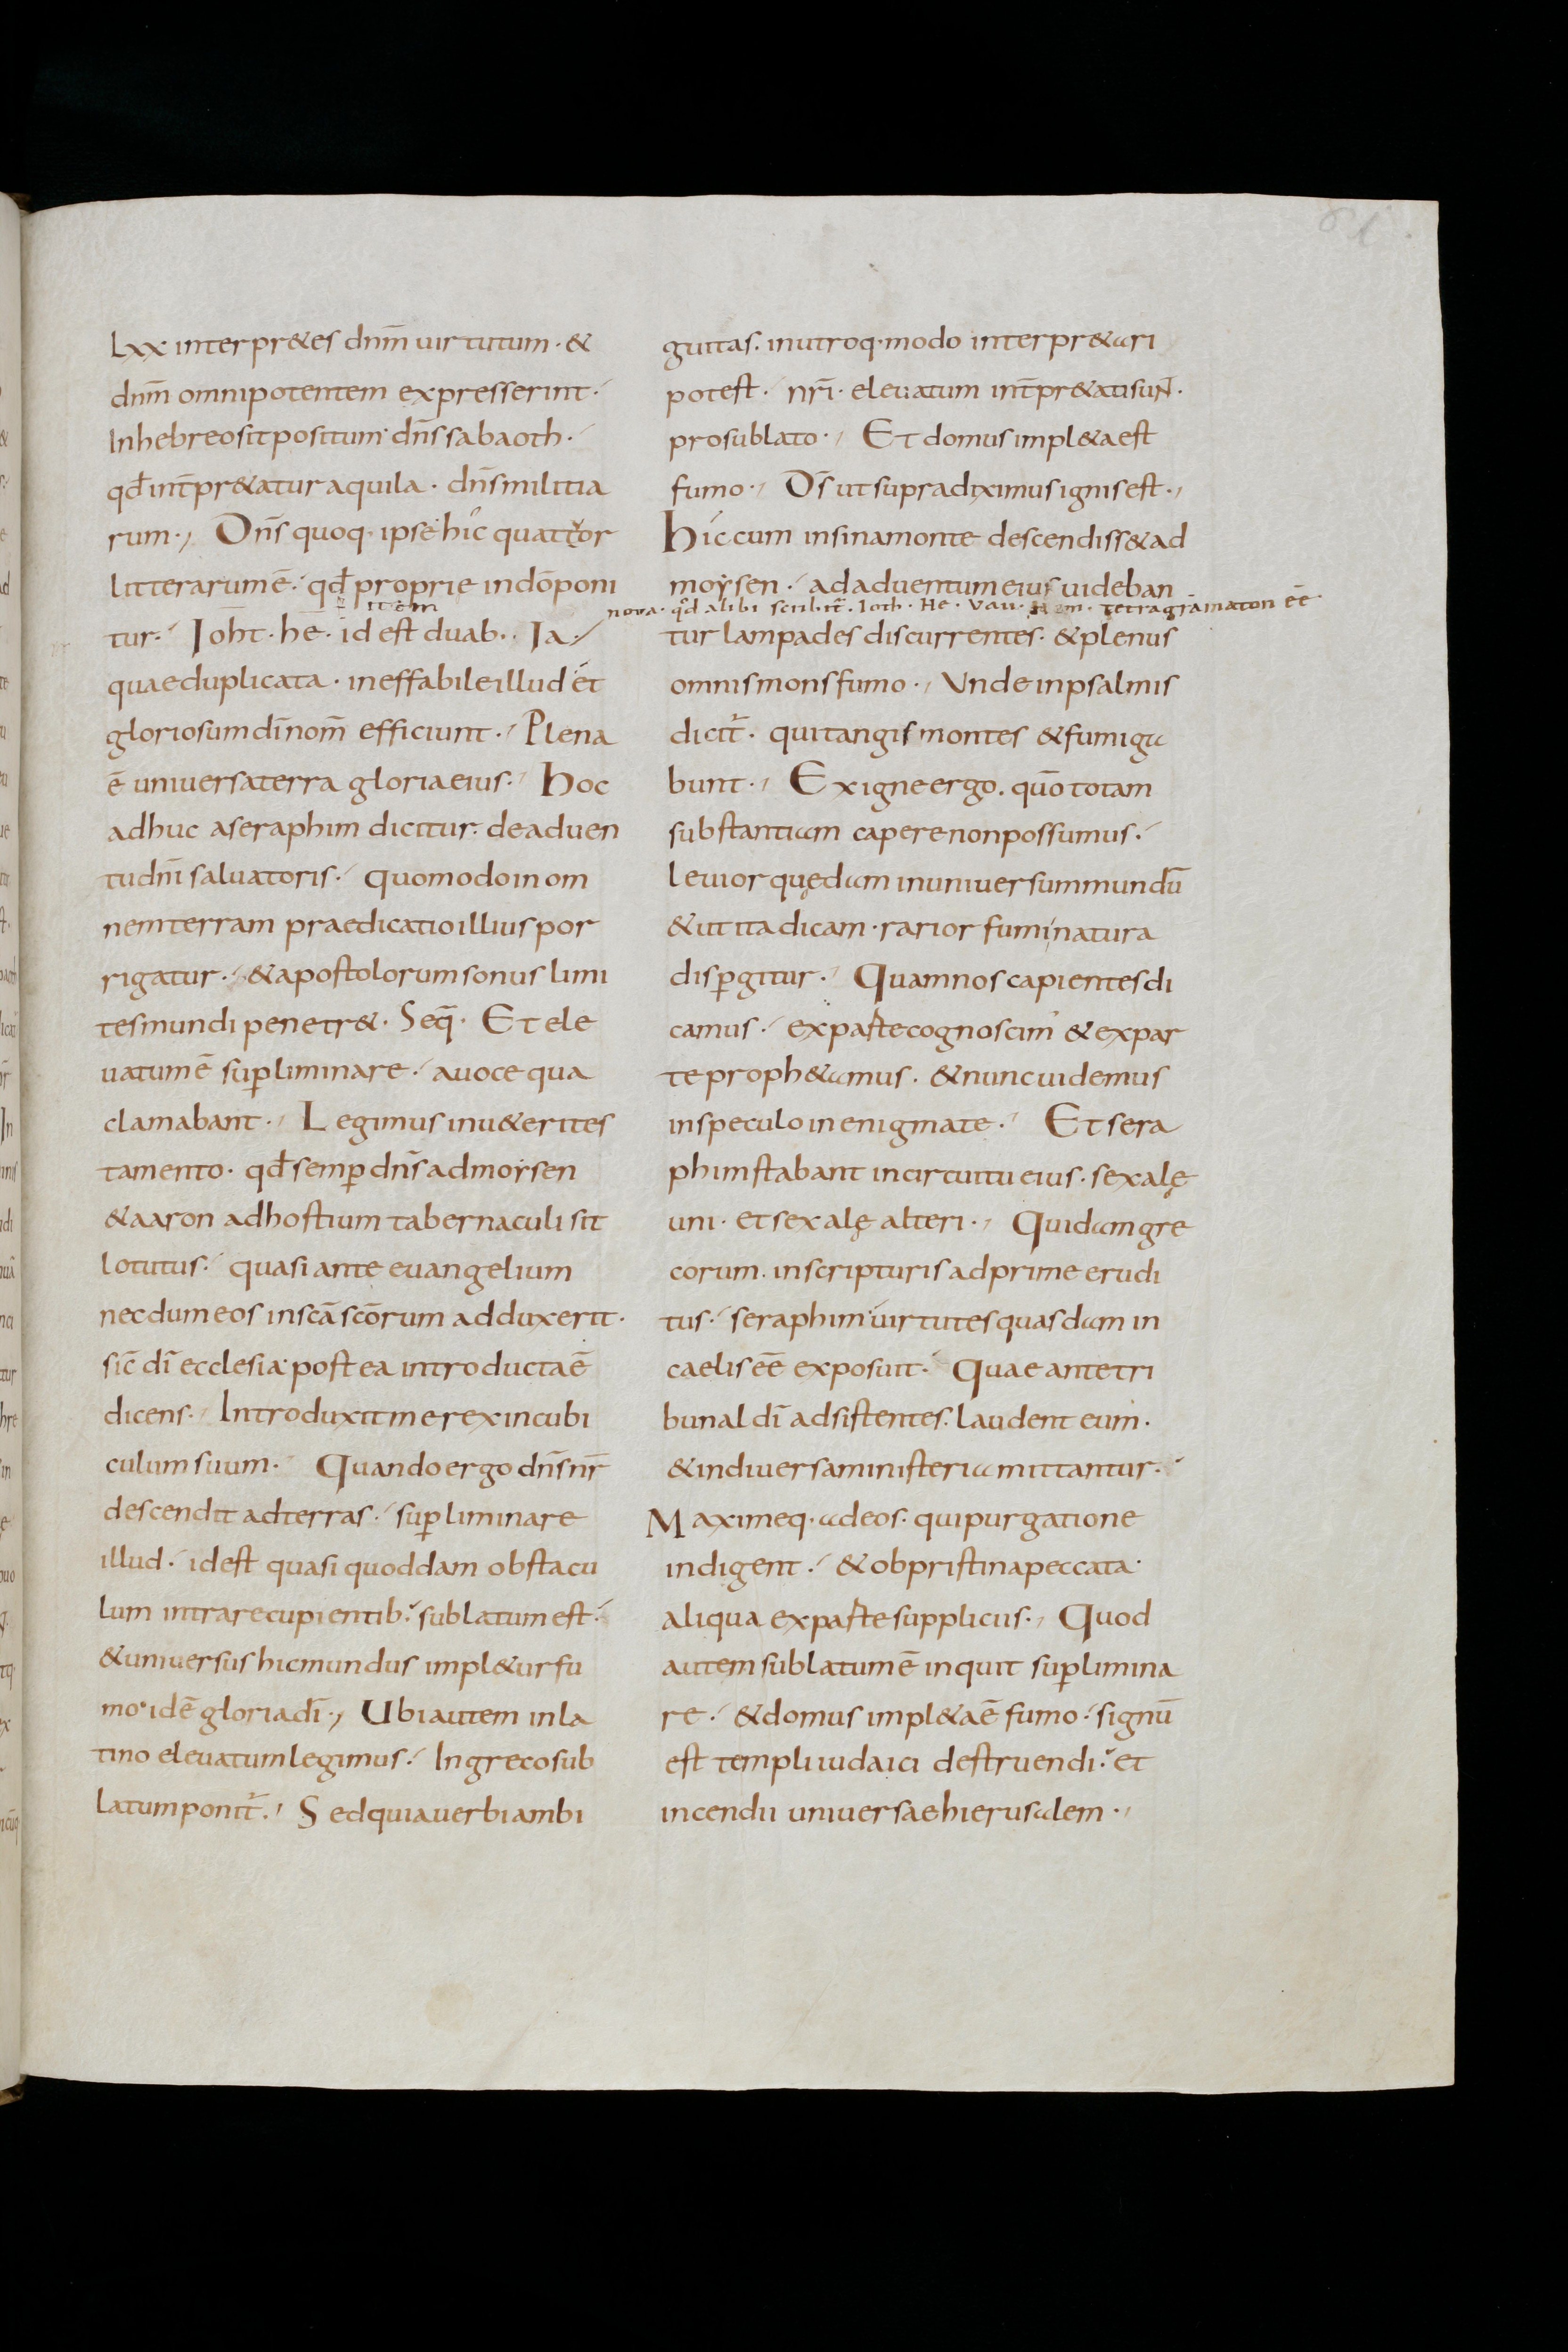 Lxx interpr&es dnm̄ uirtutum · &
dnm̄ omnipotentem expresserint ·
Inhebreo sit positum · dn̄s sabaoth ·
qđ int̄pr&atur aquila · dn̄s militia
rum · Dn̄s quoq· ipse hic quattuor
litterarum ē · qđ proprie indō poni
item
tur · Ioht · he · id est duab·· Ia ·
quae duplicata · ineffabile illud et
gloriosum dī nom̄ efficiunt · Plena
ē uniuersa terra gloria eius · Hoc
adhuc a seraphim dicitur · de aduen
tu dnī saluatoris · quomodo in om
nem terram praedicatio illius por
rigatur · & apostolorum sonus limi
tes mundi penetr& · Seq̄ · Et ele
uatum ē sup̄liminare · a uoce qua
clamabant · Legimus in u&eri tes
tamento · qđ semp̄ dn̄s ad moẏsen
& aaron ad hostium tabernaculi sit
locutus · quasi ante euangelium
necdum eos in scā scōrum adduxerit ·
sic̄ dī ecclesia · postea introducta ē
dicens · Introduxit me rex in cubi
culum suum · Quando ergo dn̄s nr̄
descendit ad terras · sup̄liminare
illud · id est quasi quoddam obstacu
lum intrare cupientib· sublatum est ·
& uniuersus hic mundus impl&ur fu
mo · id ē gloria dī · Ubi autem in la
tino eleuatum legimus · In greco sub
latum ponit̄ · Sed quia uerbi ambi
guitas · in utroq· modo interpr&ari
potest · nr̄i · eleuatum int̄pr&ati sunt ·
pro sublato · Et domus impl&a est
fumo · Ds̄ ut supra diximus ignis est ·
Hic cum in sina monte descendiss& ad
moẏsen · ad aduentum eius uideban
nova · qđ alibi scribit̄ · Ioth · He · Vau · Hem · tetragramaton ēē
tur lampades discurrentes · & plenus
omnis mons fumo · Vnde in psalmis
dicit̄ · qui tangis montes & fumiga
bunt · Ex igne ergo · quō totam
substantiam capere non possumus ·
leuior quędam in uniuersum mundū
& ut ita dicam · rarior fumi natura
disp̄gitur · Quam nos capientes di
camus · ex parte cognoscim' & ex par
te proph&amus · & nunc uidemus
in speculo in enigmate · Et sera
phim stabant in circuitu eius · sex alę
uni · et sex alę alteri · Quidam gre
corum · in scripturis adprime erudi
tus · seraphim uirtutes quasdam in
caelis ēē exposuit · Quae ante tri
bunal dī adsistentes · laudent eum ·
& in diuersa ministeria mittantur ·
Maximeq· ad eos · qui purgatione
indigent · & ob pristina peccata ·
aliqua ex parte suppliciis · Quod
autem sublatum ē inquit sup̄limina
re · & domus impl&a ē fumo · signū
est templi iudaici destruendi · et
incendii uniuersae hierusalem ·